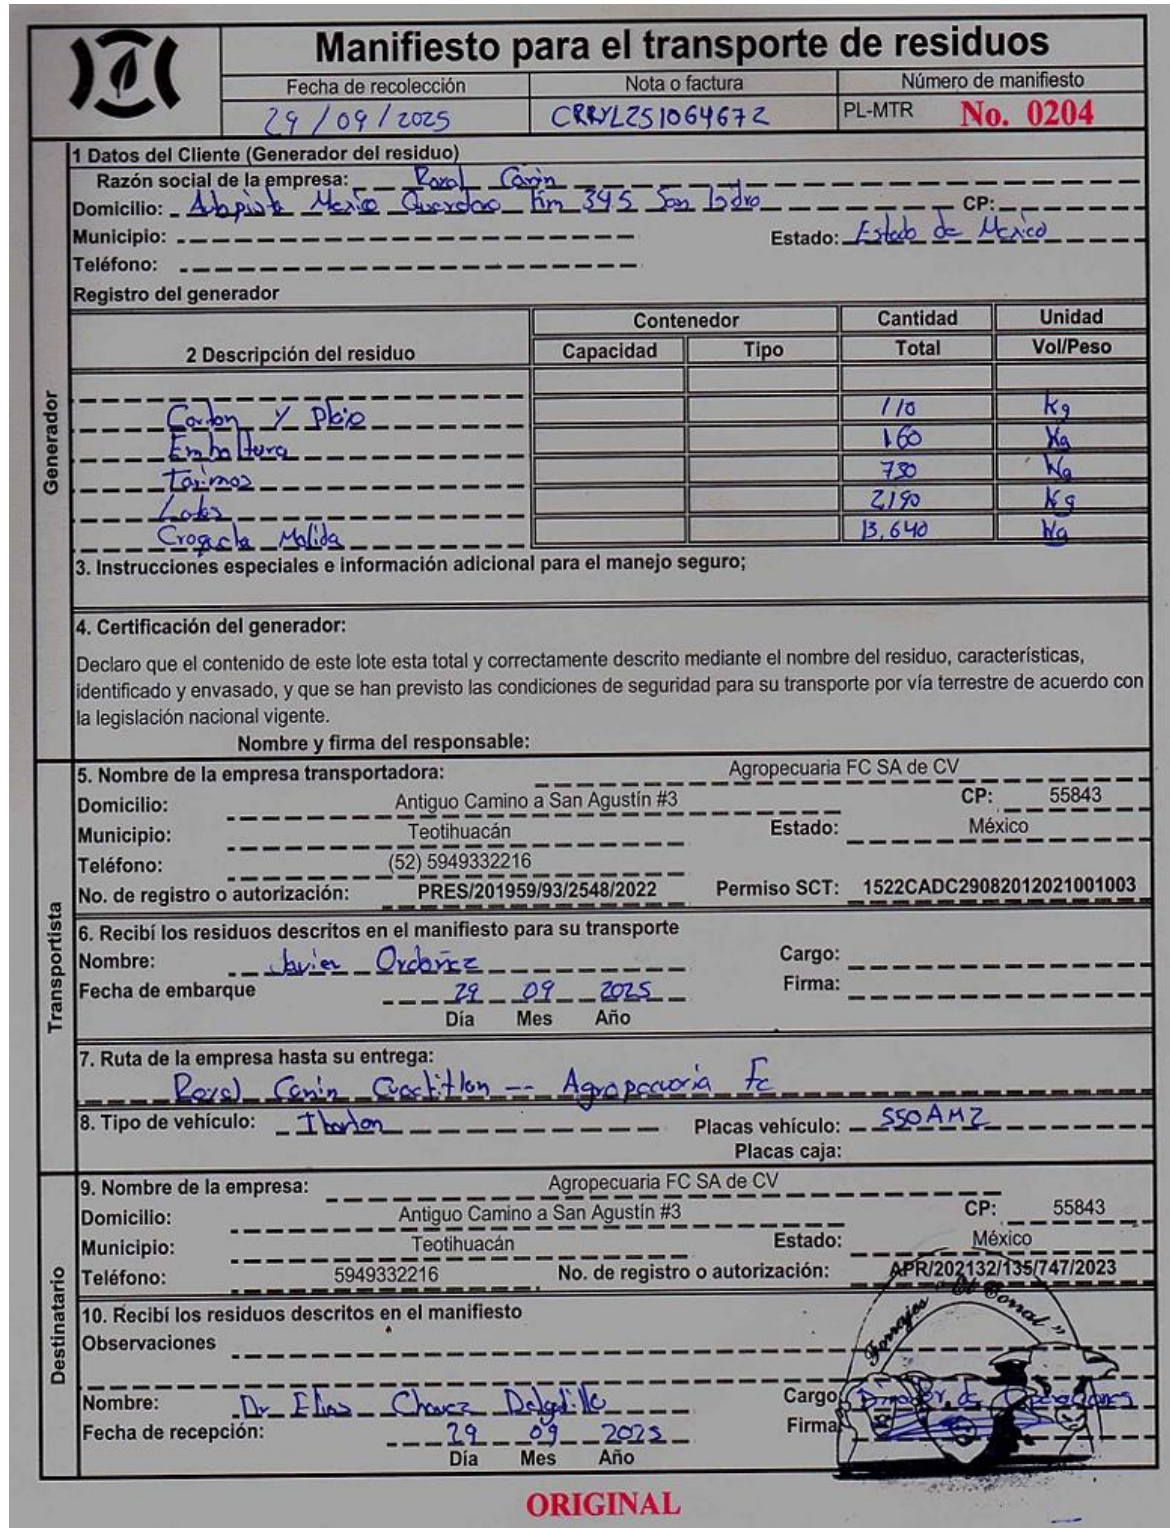 Manifiesto para el transporte de residuos
Fecha de recolección Nota o factura Número de manifiesto
29/09/2025 CRRYL251064672 PL-MTR No. 0204
1 Datos del Cliente (Generador del residuo)
Razón social de la empresa: Royal Canin
Domicilio: Mexico Km 395 San CP:
Municipio: Estado: Estado de Mexico
Teléfono:
Registro del generador
Contenedor Cantidad Unidad
2 Descripción del residuo Capacidad Tipo Total Vol/Peso
Carton y 110 Kg
160 Kg
Tarimas Kg
2,190 Kg
Molida 13,640 Kg
3. Instrucciones especiales e información adicional para el manejo seguro;
4. Certificación del generador:
Declaro que el contenido de este lote esta total y correctamente descrito mediante el nombre del residuo, características,
identificado y envasado, y que se han previsto las condiciones de seguridad para su transporte por vía terrestre de acuerdo con
la legislación nacional vigente.
Nombre y firma del responsable:
Generador
5. Nombre de la empresa transportadora: Agropecuaria FC SA de CV
Domicilio: Antiguo Camino a San Agustín #3 CP: 55843
Municipio: Teotihuacán Estado: México
Teléfono: (52) 5949332216
No. de registro o autorización: PRES/201959/93/2548/2022 Permiso SCT: 1522CADC29082012021001003
6. Recibí los residuos descritos en el manifiesto para su transporte
Nombre: Javier Ordoñez Cargo:
Fecha de embarque 29 09 2025 Firma:
Día Mes Año
7. Ruta de la empresa hasta su entrega:
Royal Canin -- Agropecuaria Fc
8. Tipo de vehículo: Placas vehículo:
Placas caja:
Transportista
9. Nombre de la empresa: Agropecuaria FC SA de CV
Domicilio: Antiguo Camino a San Agustín #3 CP: 55843
Municipio: Teotihuacán Estado: México
Teléfono: 5949332216 No. de registro o autorización: APR/202132/135/747/2023
10. Recibí los residuos descritos en el manifiesto
Forrajes "El Corral"
Observaciones
Nombre: Dr Elias Chavez Delgadillo Cargo: Director de Operaciones
Fecha de recepción: 29 09 2025 Firma
Día Mes Año
Destinatario
ORIGINAL